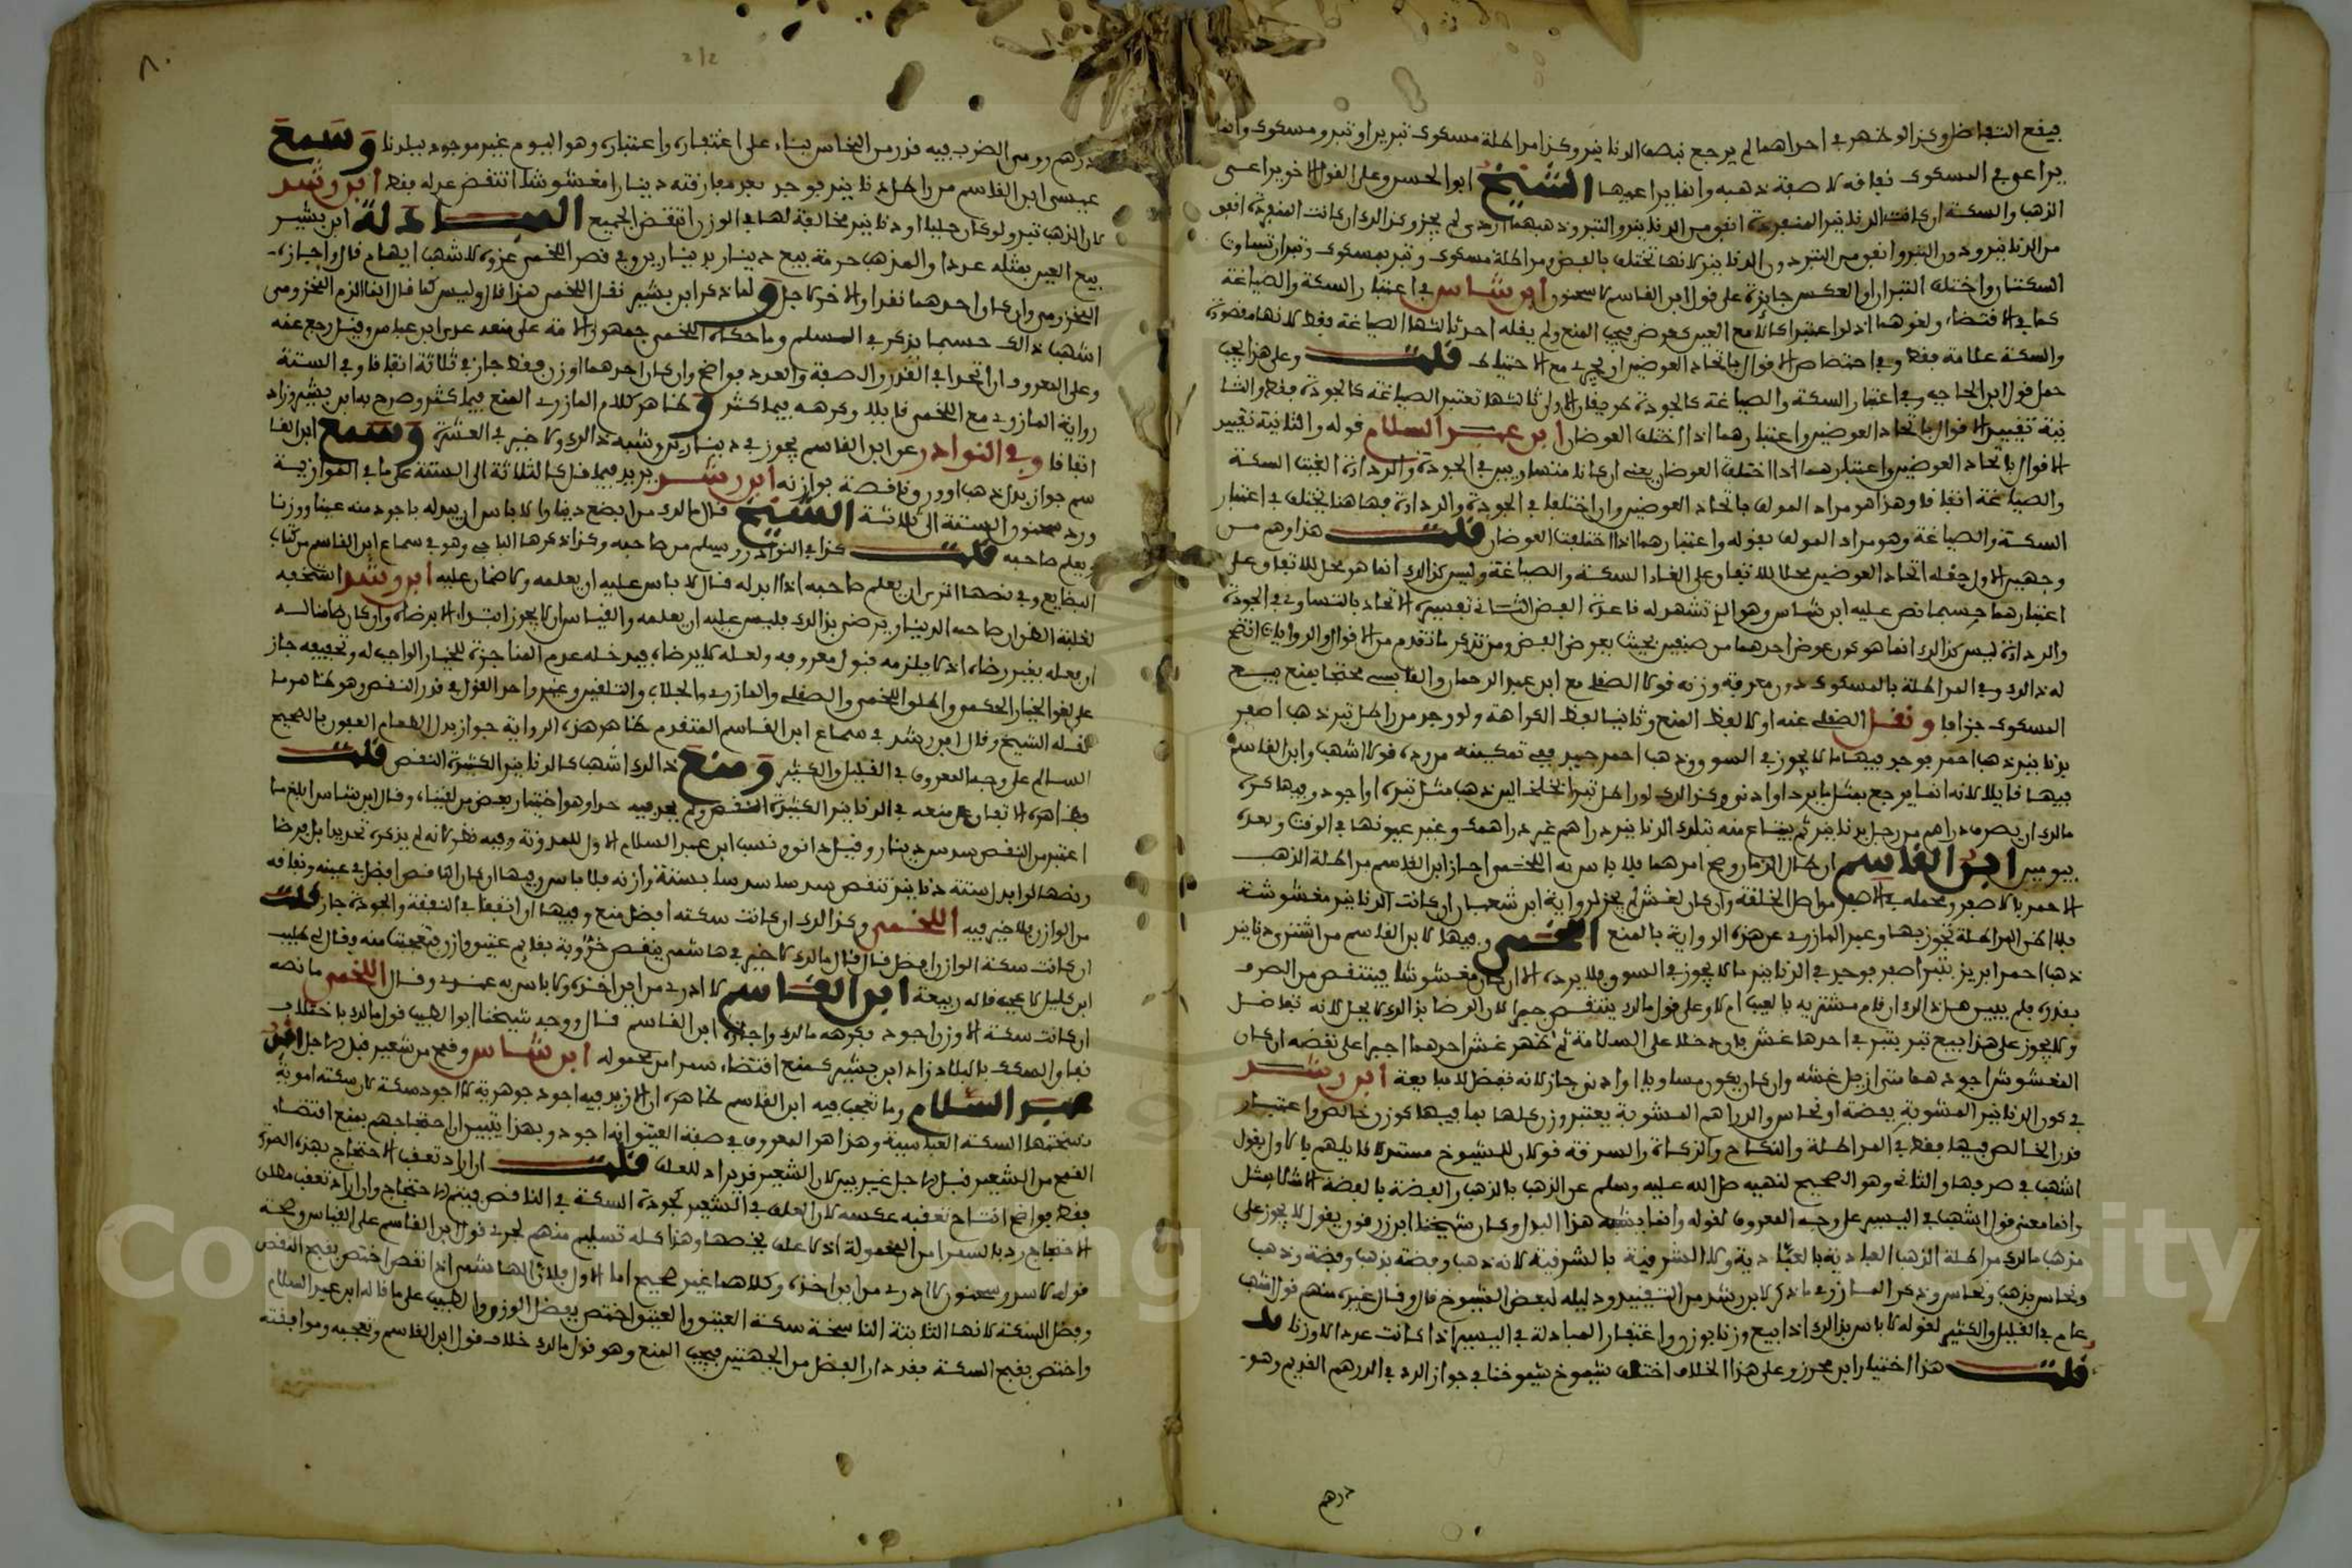 فيقع التفاضل وكذا لو ظهر في احداهما لم يرجع نصف الدنانير وكذا مراطلة مسكوك تبرين او تبر ومسكوك وانما
يراعى في المسكوك نفاقه لا صفة ذهبه وانما يراعيها الشيخ ابو الحسن وعلى القول الاخر يراعى
الذهب والسكة ان كانت الدنانير المنفردة انفق من الدنانير والتبر وذهبهما اردى لم يجز وكذلك ان كانت المنفردة انفق
من الدنانير ودون التبر وانفق من التبر دون الدنانير لانها تختلف بالعرض ومراطلة مسكوك وتبر بمسكوك وتبر ان تساوت
السكتان واختلف التبران او العكس جايزة على قول ابن القاسم لا سحنون ابن شاس في اعتبار السكة والصياغة
كما في الاقتضاء ولغوهما
والسكة علامة فقط وفي اختصاص الاقوال باتحاد العوضين او يجري مع الاختلاف قلت وعلى هذا يجب
حمل قول ابن الحاجب وفي اعتبار السكة والصياغة كالجودة طريقان الاولى ثالثها تعتبر الصياغة كالجودة فقط والثا
نية تقييد الاقوال باتحاد العوضين واعتبارهما اذا اختلف العوضان ابن عبد السلام قوله والثانية تقييد
الاقوال باتحاد العوضين واعتبارهما اذا اختلف العوضان يعني ان كانا متساويين في الجودة والرداءة الغيت السكة
والصياغة اتفاقا وهذا هو مراد المولف باتحاد العوضين وان اختلفا في الجودة والرداءة فهاهنا يختلف في اعتبار
السكة والصياغة وهو مراد المولف بقوله واعتبارهما اذا اختلف العوضان قلت هذا وهم من
وجهين الاول جعله اتحاد العوضين محلا للاتفاق على الغاء السكة والصياغة وليس كذلك انما هو محل للاتفاق على
اعتبارهما حسبما نص عليه ابن شاس وهو الذي تشهد له قاعدة الفضل الثاني تفسيره الاتحاد بالتساوي في الجودة
والرداءة ليس كذلك انما هو كون عوض احدهما من صنفين بحيث يعوض الفضل ومن تذكر ما تقدم من الاقوال والروايات اتضح
له ذلك وفي المراطلة بالمسكوك دون معرفة وزنه قولا الصقلي مع ابن عبد الرحمان والقابسي محتجا بمنع بيع
المسكوك جزافا ونقل الصقلي عنه اولا لفظ المنع وثانيا لفظ الكراهة ولو وجد من راطل تبر ذهبا اصفر
بدنانير ذهبا احمر فوجد فيها ما لا يجوز في السوق وذهبا احمر جيد ففي تمكينه من رده قولا اشهب وابن القاسم
فيها قايلا لانه انما يرجع بمثل ما يرد او ادنى وكذلك لو راطل تبر الخلخالين ذهب مثل تبره او اجود وفيها كره
مالك ان يصرف دراهم من رجل بدنانير ثم يبتاع منه بتلك الدنانير دراهم غير دراهمك وغير عيونها في الوقت وبعده
بيومين ابن القاسم ان طال الزمان وصح امرهما فلا باس به اللخمي اجاز ابن القاسم مراطلة الذهب
الاحمر بالاصفر ومحمله في الاصفر من اصل الخلقة وان كان لغش لم يجز لرواية ابن شعبان ان كانت الدنانير مغشوشة
فلا اظن المراطلة تجوز بها وعبر المازري عن هذه الرواية بالمنع اللخمي وفيها لابن القاسم من اشترى دنانير
ذهبا احمر ابريز بتبر اصفر فوجد في الدنانير ما لا يجوز في السوق فلا يرده الا ان كان مغشوشا فينتقض من الصرف
بقدره فلم يبين هل ذلك ان قام مشتريه بالعيب ام لا وعلى قول مالك ينتقض جبرا لان الرضا بذلك لا يحل لانه تفاضل
ولا يجوز على هذا بيع تبر بتبر في احدهما غش فان دخلا على السلامة ثم ظهر غش احدهما اجبرا على نقضه ان كان
المغشوش اجودهما لو ازيل غشه وان كان يكون مساويا او ادنى جاز لانه تفضل لا مبايعة ابن رشد
في كون الدنانير المشوبة بفضة او نحاس والدراهم المشوبة يعتبر وزن كلها بما فيها كوزن خالص واعتبار
قدر الخالص فيها فقط في المراطلة والنكاح والزكاة والسرقة قولان للشيوخ مستدلا قايلهم بالاول بقول
اشهب في صرفها والثاني وهو الصحيح لنهيه صلى الله عليه وسلم عن الذهب بالذهب والفضة بالفضة الا مثلا بمثل
وانما معنى قول اشهب في اليسير على وجه المعروف لقوله وانما يشبه هذا البدل وكان شيخنا ابن رزق يقول لا يجوز على
مذهب مالك مراطلة الذهب العبادية بالعبادية ولا الشرقية بالشرقية لانه ذهب وفضة بذهب وفضة وذهب
ونحاس بذهب ونحاس وذكر المازري ما ذكر لابن رشد من التقييد ودليله لبعض الشيوخ قال وقال غيره منهم قول اشهب
عام في القليل والكثير لقوله لا باس بذلك اذا بيع وزنا بوزن واغتفار المبادلة في اليسير اذا كانت عددا لا وزنا
قلت هذا اختيار ابن محرز وعلى هذا الخلاف اختلف شيوخ شيوخنا في جواز الرد في الدرهم القديم وهو
درهم
٨٠
درهم رومي الضرب فيه قدر من النحاس بناء على اغتفاره واعتباره وهو اليوم غير موجود ببلدنا وسمع
عيسى ابن القاسم من راطل دنانير فوجد بعد مفارقته دينارا مغشوشا انتقض عدله فقط ابن رشد
كان الذهب تبرا ولو كان حليا او دنانير مخالفة لها في الوزن انتقض الجميع المبادلة ابن بشير
بيع العين بمثله عددا والمذهب حرمة بيع دينار بدينارين وفي قصر اللخمي عزوه لاشهب ايهام قال واجازه
المخزومي وان كان احدهما نقدا والاخر لاجل ولما ذكر ابن بشير نقل اللخمي هذا قال وليس كما قال انما الزم المخزومي
اشهب ذلك حسبما يذكر في المسلم وما حكاه اللخمي جمهور الامة على منعه عدى ابن عباس وقيل رجع عنه
وعلى المعروف ان اتحدا في القدر والصفة والعدد فواضح وان كان احدهما اوزن فقط جاز في ثلاثة اتفاقا وفي الستة
رواية المازري مع اللخمي قايلا وكرهه فيما كثر وظاهر كلام المازري المنع فيما كثر وصرح به ابن بشير وزاد
اتفاقا وفي النوادر عن ابن القاسم يجوز في دينارين وشبه ذلك ولا خير في العشرة وسمع ابن القا
سم جواز بدل ذهب اوورق ناقصة بوازنه ابن رشد يريد فيما قل كالثلاثة الى الستة على ما في الموازية
ورد سحنون الستة الى ثلاثة الشيخ قال مالك من ابضع دينارا لا باس ان يبدله باجود منه عينا ووزنا
ويعلم صاحبه قلت كذا في النوادر ويسلم من صاحبه وكذا ذكرها الباجي وهو في سماع ابن القاسم من كتاب
البضايع وفي نصها اترى ان يعلم صاحبه اذا ابدله فقال لا باس عليه ان يعلمه ولا ضمان عليه ابن رشد استخفه
لغلبة الظن ان صاحب الدينار يرضى بذلك فليس عليه ان يعلمه والقياس ان لا يجوز ابتداء الا برضاه وان كان ضامنا له
ان يعله بغير رضاه اذ لا يلزمه قبول معروفه ولعله لا يرضاه فيدخله عدم المناجزة للخيار الواجب له وتخفيفه جاز
على لغو الخيار الحكمي واطلق اللخمي والصقلي والمازري والجلاب والتلقين وغير واحد القول في قدر النقص وهو ظاهر ما
نقله الشيخ وقال ابن رشد في سماع ابن القاسم المتقدم ظاهر هذه الرواية جواز بدل الطعام المعفون بالصحيح
السالم على وجه المعروف في القليل والكثير ومنع ذلك اشهب كالدنانير الكثيرة النقص قلت
فظاهره الاتفاق على منعه في الدنانير الكثيرة النقص ولم يحد فيه حدا وهو اختيار بعض من لقيناه وقال ابن شاس ابلغ ما
اعتبر من النقص سدس دينار وقيل دانق ونسب ابن عبد السلام الاول للمدونة وفيه نظر لانه لم يذكره تحديدا بل فرضا
ونصها لو ابدل ستة دنانير تنقص سدسا سدسا بستة وازنة فلا باس وفيها ان كان الناقص افضل في عينه ونفاقه
من الوازن فلا خير فيه اللخمي وكذلك ان كانت سكته افضل منع وفيها ان اتفقا في النفقة والجودة جاز قلت
ان كانت سكة الوازن افضل قال مالك لا خير في هاشمي ينقص خروبة بقايم عتيق وازن فتعجبت منه وقال لي طليب
ابن كامل لا تعجب قاله ربيعة ابن القاسم لا ادري من اين اخذه ولا باس به عندي وقال اللخمي ما نصه
ان كانت سكة الاوزن اجود فكرهه مالك واجازه ابن القاسم قال ووجه شيخنا ابو الطيب قول مالك باختلاف
نفاق السكك بالبلاد زاد ابن بشير كمنع اقتضاء سمراء من محمولة ابن شاس وقمح من شعير قبل الاجل ابن
عبد السلام وما تعجب فيه ابن القاسم ظاهره ان الازيد فيه اجود جوهرية لا اجود سكة لان سكته اموية
نسختها السكة العباسية وهذا هو المعروف في صفة العتيق انه اجود وبهذا يتبين ان احتجاجهم بمنع اقتضاء
القمح من الشعير قبل الاجل غير بين لان الشعير قد يراد للعلف قلت ان اراد تعقب الاحتجاج بهذه الصورة
فقط فواضح انتاج تعقبه عكسه لان العلف في الشعير كجودة السكة في الناقص فيتم الاحتجاج وان اراد تعقب مطلق
الاحتجاج رد بالسمراء من المحمولة اذ لا علف يخصها وهذا كله تسليم منهم لجري قول ابن القاسم على القياس وصحة
قوله كاسر وسحنون لا ادري من اين اخذه وكلاهما غير صحيح اما الاول فلان الهاشمي اذا نقص اختص بقبح النقص
وفضل السكة لانها الثابتة الناسخة سكة العتيق والعتيق اختص بفضل الوزن والطيب على ما قاله ابن عبد السلام
واختص بقبح السكة فقد دار الفضل من الجهتين فيجب المنع وهو قول مالك خلاف قول ابن القاسم وتعجبه وموافقته